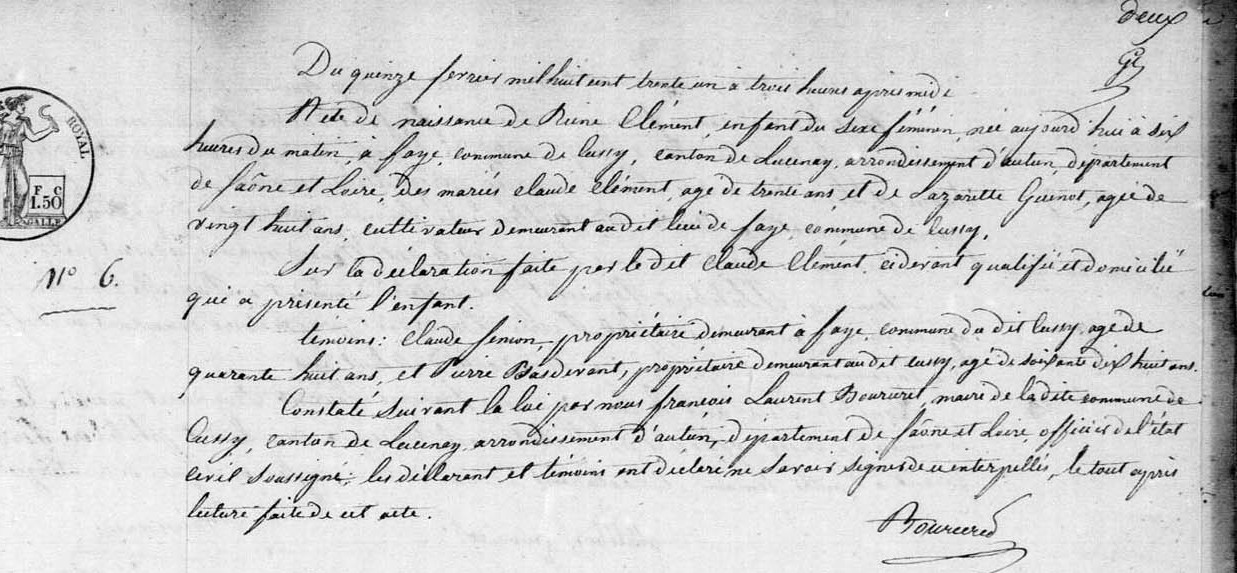 deux
Du quinze fevrier mil huit cent trente un à trois heures apres midi
Acte de naissance de Reine Clément, enfant du sexe féminin, née aujourd'hui à six
heures du matin, à faye, commune de Cussy, canton de Lucenay, arrondissement d'autun, département
de Saône et Loire, des mariés Claude Clément, agé de trente ans et de Lazarette Guenot, agée de
ROYAL
F. C
1.50
GALLE
vingt huit ans cultivateur demeurant au dit lieu de faye, commune de Cussy.
N° 6.
Sur la déclaration faite par le dit Claude Clément, cidevant qualifié et domicilié
qui a présenté l'enfant.
témoins: Claude Simon, propriétaire demeurant à faye, commune du dit Cussy, agé de
quarante huit ans, et Pierre Basdevant, propriétaire demeurant au dit Cussy, agé de soixante dix huit ans.
Constaté suivant la loi par nous françois Laurent Bourcret, maire de la dite commune de
Cussy, canton de Lucenay, arrondissement d'autun, département de Saône et Loire, officier de l'état
civil soussigné; les déclarant et témoins ont déclaré ne savoir signer de ce interpellés, le tout après
lecture faite de cet acte.
Bourcret